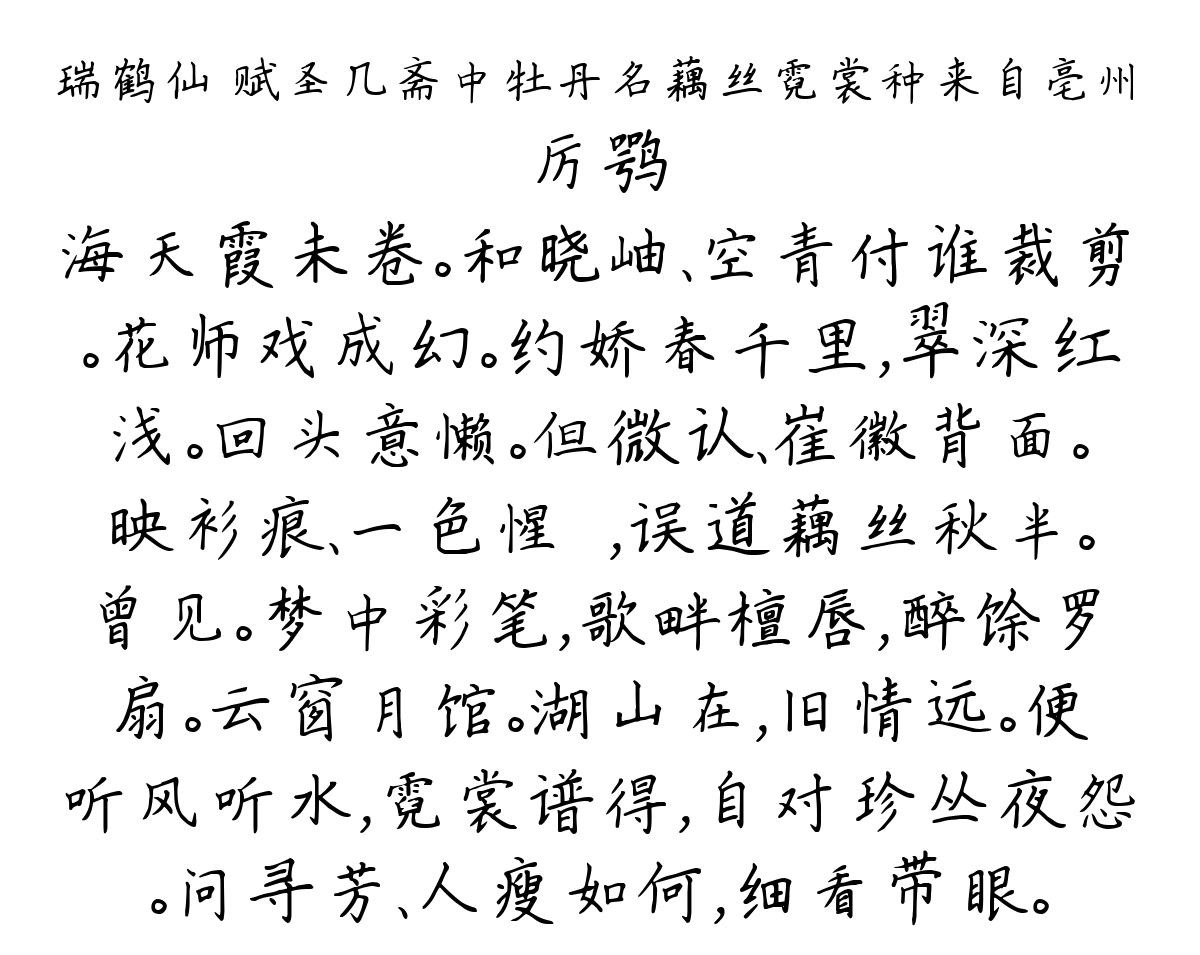 瑞鹤仙 赋圣几斋中牡丹名藕丝霓裳种来自亳州
厉鹗
海天霞未卷。和晓岫、空青付谁裁剪
。花师戏成幻。约娇春千里,翠深红
浅。回头意懒。但微认、崔徽背面。
映衫痕、一色惺 ,误道藕丝秋半。
曾见。梦中彩笔,歌畔檀唇,醉馀罗
扇。云窗月馆。湖山在,旧情远。便
听风听水,霓裳谱得,自对珍丛夜怨
。问寻芳、人瘦如何,细看带眼。